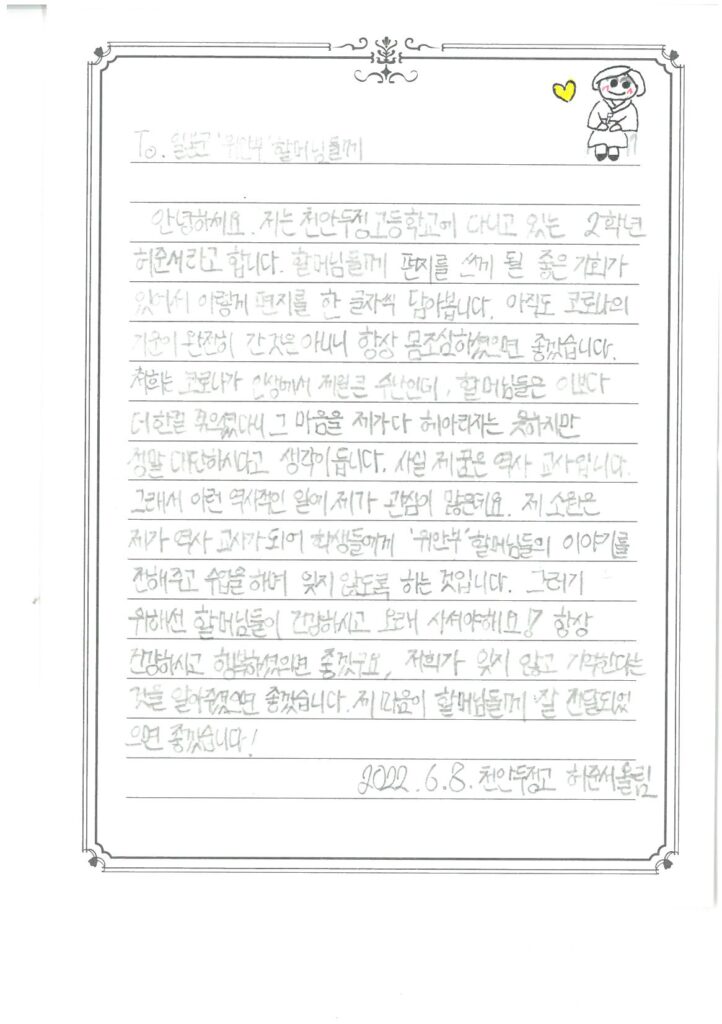 To. 일본군 '위안부' 할머님들께
안녕하세요. 저는 천안두정고등학교에 다니고 있는 2학년
허준서라고 합니다. 할머님들께 편지를 쓰게 될 좋은 기회가
있어서 이렇게 편지를 한 글자씩 담아봅니다. 아직도 코로나의
기운이 완전히 간것은 아니니 항상 몸조심하셨으면 좋겠습니다.
저희는 코로나가 인생에서 제일 큰 수난인데, 할머님들은 이보다
더한걸 겪으셨다니 그 마음을 제가 다 헤아리지는 못하지만
정말 대단하시다고 생각이 듭니다. 사실 제 꿈은 역사 교사입니다.
그래서 이런 역사적인 일에 제가 관심이 많은데요. 제 소원은
제가 역사 교사가 되어 학생들에게 '위안부' 할머님들의 이야기를
전해주고 수업을 하며 잊지 않도록 하는 것입니다. 그러기
위해선 할머님들이 건강하시고 오래 사셔야해요! 항상
건강하시고 행복하셨으면 좋겠구요, 저희가 잊지 않고 기억한다는
것을 알아주셨으면 좋겠습니다. 제 마음이 할머님들께 잘 전달되었
으면 좋겠습니다!
2022.6.8. 천안두정고 허준서 올림